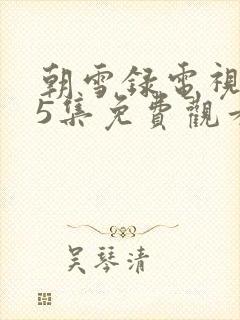 朝雪録電視
5集免費觀
吴琴清